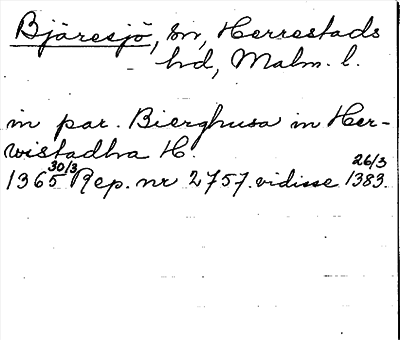 Bjäresjö, sn, Herrestads
hd, Malm. l.
in par. Bierghusa in Her-
wistadha H.
1365 30/3 Rep. nr 2757. vidisse 26/3 1383.